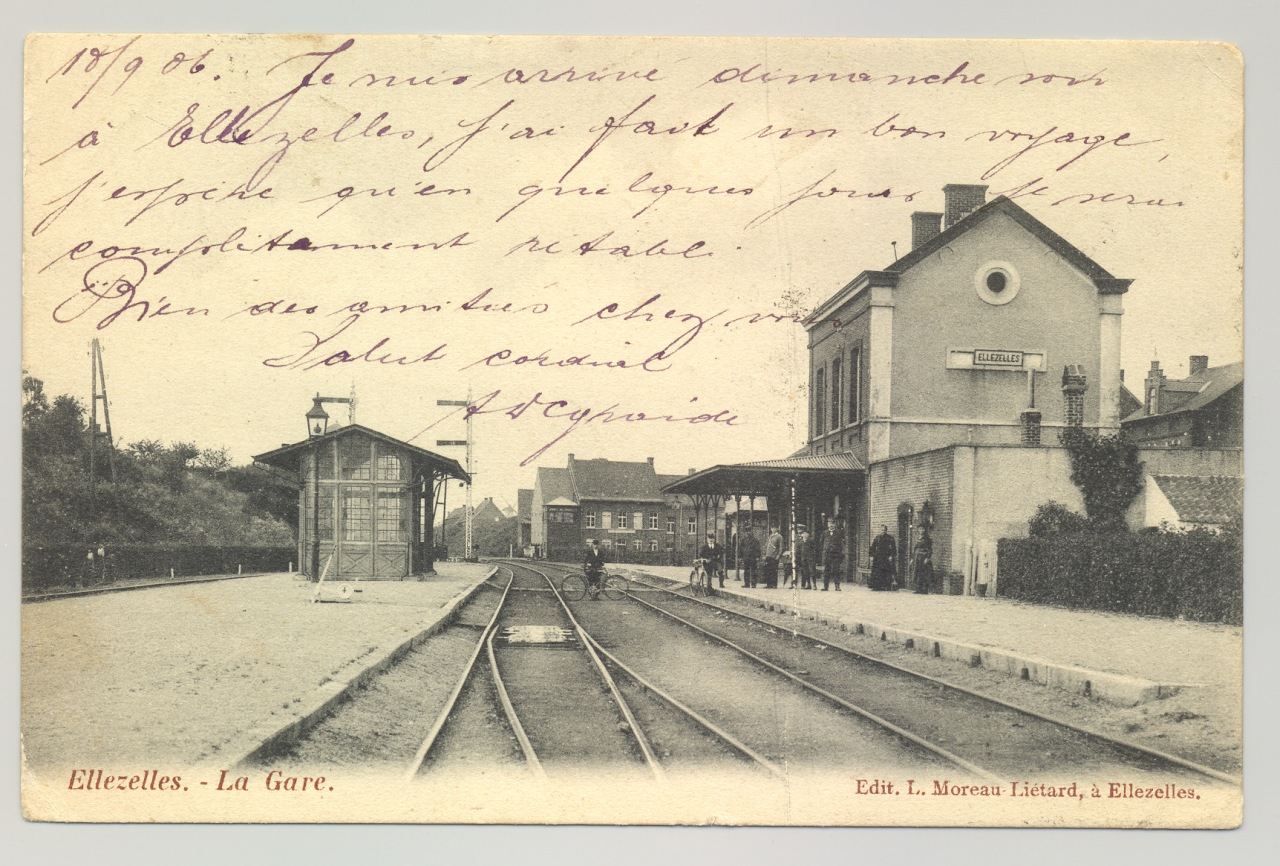 18/9 06. Je suis arrivé dimanche soir
à Ellezelles, j'ai fait un bon voyage,
j'espère qu'en quelques jours je serai
complètement rétabli.
Bien des amitiés chez vous
Salut cordial
ELLEZELLES
Ellezelles. - La Gare.
Edit. L. Moreau-Liétard, à Ellezelles.